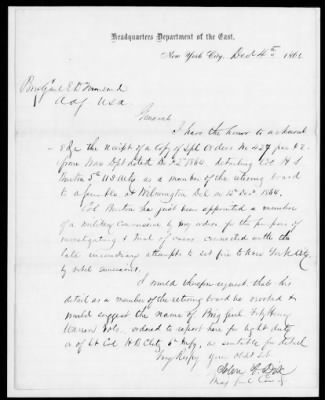 Headquarters Department of the East.
New York City, Dec 4th 186
Brig Genl E D Townsend
A A G U.S.A.
General
I have the honor to acknowl
edge the receipt of a copy of Spl Orders No 427 par 42
from War Dept dated Dec 2d 1864, detailing Col H S
Burton 5th US Arty as a member of the retiring board
to assemble at Wilmington Del on 15 Dec 1864.
Col Burton has just been appointed a member
of a military Commission by my orders for the purpose of
investigating & trial of cases, connected with the
late incendiary attempts to set fire to New York City
by rebel emissaries.
I would therefore request that his
detail as a member of the retiring board be revoked &
would suggest the name of Brig Genl Fitz Henry
Warren Vols. ordered to report here for light duty
or of Lt Col H B Clitz 6th Infy, as suitable for detail
Very Respy Your Obt St
John A. Dix
Maj Genl Com'g